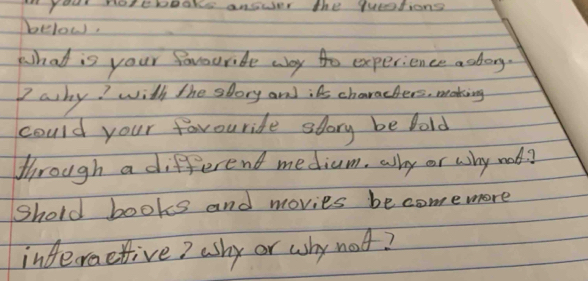 in your notebooks answer the questions
below.
what is your favourite way to experience a story.
? why? with the story and its characters. making
could your favourite story be told
through a different medium. why or why not?
Shold books and movies become more
interactive? why or why not?